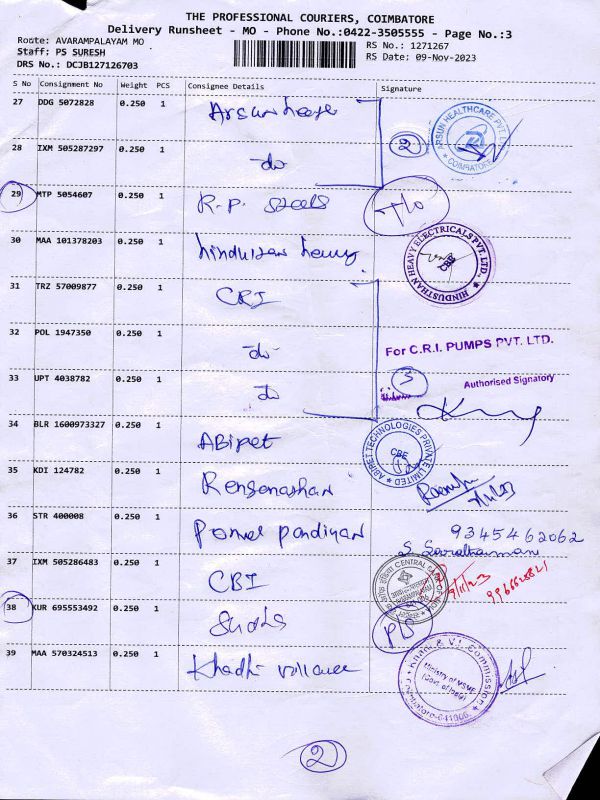 THE PROFESSIONAL COURIERS, COIMBATORE
Delivery Runsheet - MO - Phone No.:0422-3505555 - Page No.:3
Route: AVARAMPALAYAM MO
Staff: PS SURESH
DRS No.: DCJB127126703
RS No.: 1271267
RS Date: 09-Nov-2023
S No Consignment No Weight PCS Consignee Details Signature
27 DDG 5072828 0.250 1
28 IXM 505287297 0.250 1 do 2
ARSUN HEALTHCARE PVT LTD COIMBATORE
29 MTP 5054607 0.250 1 R.P. Steels
30 MAA 101378203 0.250 1 hindustan heavy
HINDUSTHAN HEAVY ELECTRICALS PVT. LTD., CBE
31 TRZ 57009877 0.250 1 CRI
32 POL 1947350 0.250 1 do
For C.R.I. PUMPS PVT. LTD.
33 UPT 4038782 0.250 1 do
Authorised Signatory
34 BLR 1600973327 0.250 1 ABipet
ABIPET TECHNOLOGIES PRIVATE LIMITED CBE
35 KDI 124782 0.250 1
36 STR 400008 0.250 1 Ponnel pandiyan 9345462062
37 IXM 505286483 0.250 1 CBI
38 KUR 695553492 0.250 1
39 MAA 570324513 0.250 1 Khadhi
Khadi & V.I. Commission
Ministry of MSME
(Govt. of India)
Coimbatore-641006.
2